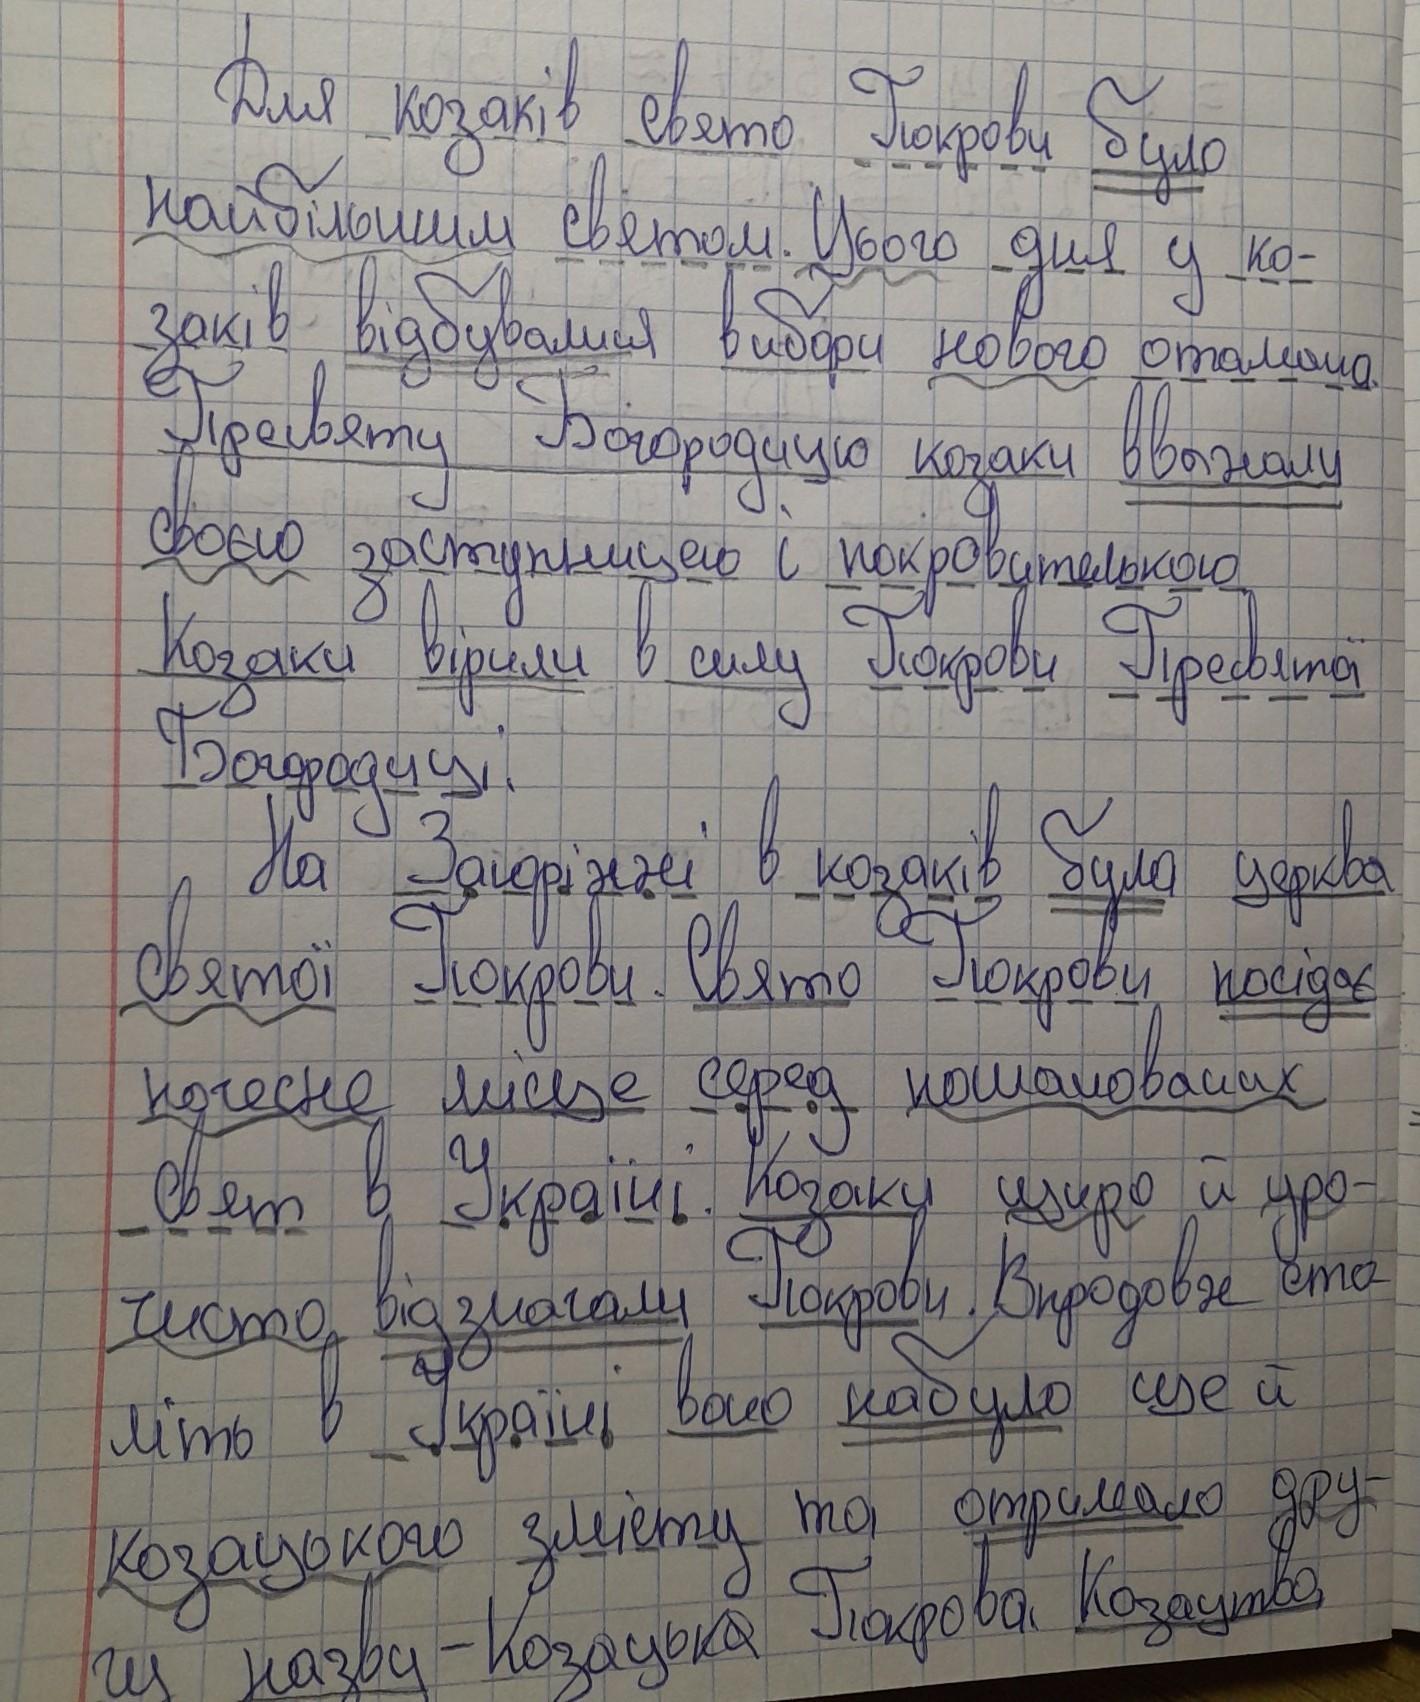 Для козаків свято Покрови було
найбільшим святом. Цього дня у ко-
заків відбувалися вибори нового отамана.
Пресвяту Богородицю козаки ввжали
своєю заступницею і покровителькою
Козаки вірили в силу Покрови Пресвятої
Богородиці.
На Запоріжжі в козаків була церква
святої Покрови. Свято Покрови посідає
почесне місце серед пошанованих
свят в Україні. Козаки щиро й уро-
чисто відзначали Покрови. Впродовж сто-
літь в Україні воно набуло ще й
козацького змісту та отримало дру-
гу назву – Козацька Покрова. Козацтво